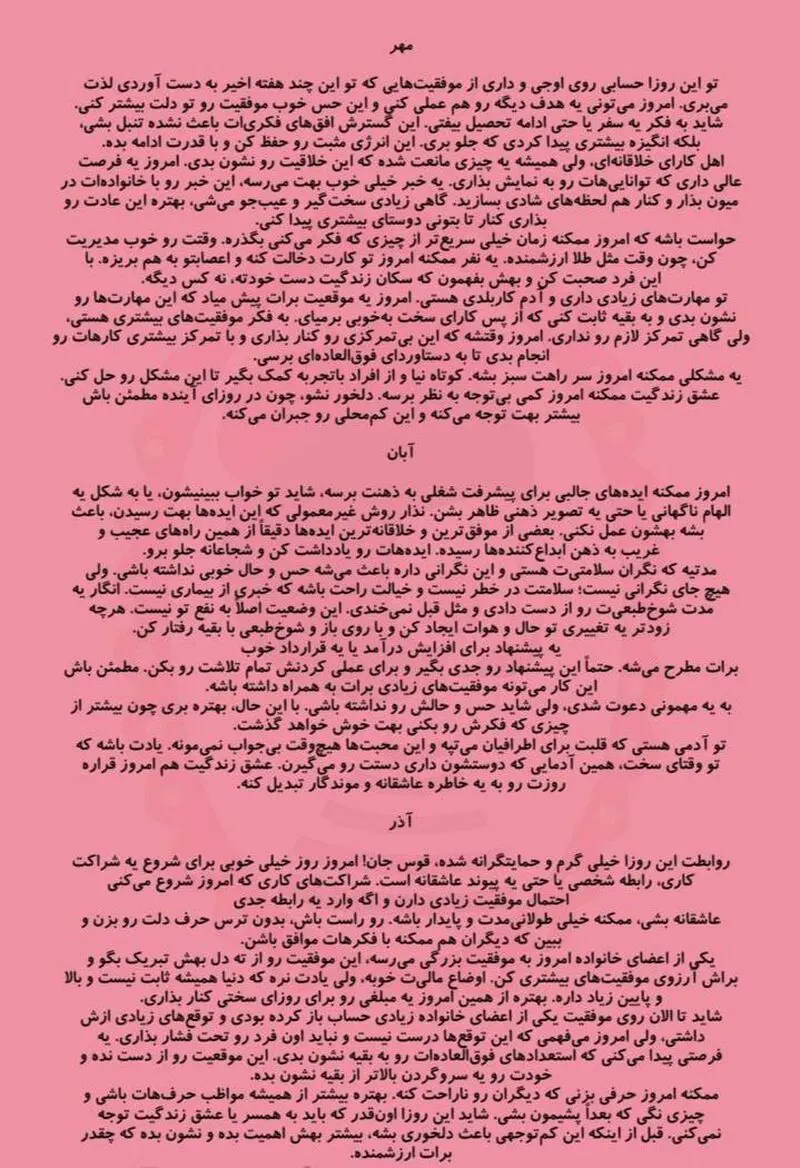 مهر
تو این روزا حسابی روی اوجی و داری از موفقیت‌هایی که تو این چند هفته اخیر به دست آوردی لذت
می‌بری. امروز می‌تونی یه هدف دیگه رو هم عملی کنی و این حس خوب موفقیت رو تو دلت بیشتر کنی.
شاید به فکر یه سفر یا حتی ادامه تحصیل بیفتی. این گسترش افق‌های فکری‌ات باعث نشده تنبل بشی،
بلکه انگیزه بیشتری پیدا کردی که جلو بری. این انرژی مثبت رو حفظ کن و با قدرت ادامه بده.
اهل کارای خلاقانه‌ای، ولی همیشه یه چیزی مانعت شده که این خلاقیت رو نشون بدی. امروز یه فرصت
عالی داری که توانایی‌هات رو به نمایش بذاری. یه خبر خیلی خوب بهت می‌رسه، این خبر رو با خانواده‌ات در
میون بذار و کنار هم لحظه‌های شادی بسازید. گاهی زیادی سخت‌گیر و عیب‌جو می‌شی، بهتره این عادت رو
بذاری کنار تا بتونی دوستای بیشتری پیدا کنی.
حواست باشه که امروز ممکنه زمان خیلی سریع‌تر از چیزی که فکر می‌کنی بگذره. وقتت رو خوب مدیریت
کن، چون وقت مثل طلا ارزشمنده. یه نفر ممکنه امروز تو کارت دخالت کنه و اعصابتو به هم بریزه. با
این فرد صحبت کن و بهش بفهمون که سکان زندگیت دست خودته، نه کس دیگه.
تو مهارت‌های زیادی داری و آدم کاربلدی هستی. امروز یه موقعیت برات پیش میاد که این مهارت‌ها رو
نشون بدی و به بقیه ثابت کنی که از پس کارای سخت به‌خوبی برمیای. به فکر موفقیت‌های بیشتری هستی،
ولی گاهی تمرکز لازم رو نداری. امروز وقتشه که این بی‌تمرکزی رو کنار بذاری و با تمرکز بیشتری کارهات رو
انجام بدی تا به دستاوردای فوق‌العاده‌ای برسی.
یه مشکلی ممکنه امروز سر راهت سبز بشه. کوتاه نیا و از افراد باتجربه کمک بگیر تا این مشکل رو حل کنی.
عشق زندگیت ممکنه امروز کمی بی‌توجه به نظر برسه. دلخور نشو، چون در روزای آینده مطمئن باش
بیشتر بهت توجه می‌کنه و این کم‌محلی رو جبران می‌کنه.
آبان
امروز ممکنه ایده‌های جالبی برای پیشرفت شغلی به ذهنت برسه، شاید تو خواب ببینیشون، یا به شکل یه
الهام ناگهانی یا حتی یه تصویر ذهنی ظاهر بشن. نذار روش غیرمعمولی که این ایده‌ها بهت رسیدن، باعث
بشه بهشون عمل نکنی. بعضی از موفق‌ترین و خلاقانه‌ترین ایده‌ها دقیقاً از همین راه‌های عجیب و
غریب به ذهن ابداع‌کننده‌ها رسیده. ایده‌هات رو یادداشت کن و شجاعانه جلو برو.
مدتیه که نگران سلامتی‌ت هستی و این نگرانی داره باعث می‌شه حس و حال خوبی نداشته باشی. ولی
هیچ جای نگرانی نیست؛ سلامتت در خطر نیست و خیالت راحت باشه که خبری از بیماری نیست. انگار یه
مدت شوخ‌طبعی‌ت رو از دست دادی و مثل قبل نمی‌خندی. این وضعیت اصلاً به نفع تو نیست. هرچه
زودتر یه تغییری تو حال و هوات ایجاد کن و با روی باز و شوخ‌طبعی با بقیه رفتار کن.
یه پیشنهاد برای افزایش درآمد یا یه قرارداد خوب
برات مطرح می‌شه. حتماً این پیشنهاد رو جدی بگیر و برای عملی کردنش تمام تلاشت رو بکن. مطمئن باش
این کار می‌تونه موفقیت‌های زیادی برات به همراه داشته باشه.
به یه مهمونی دعوت شدی، ولی شاید حس و حالش رو نداشته باشی. با این حال، بهتره بری چون بیشتر از
چیزی که فکرش رو بکنی بهت خوش خواهد گذشت.
تو آدمی هستی که قلبت برای اطرافیان می‌تپه و این محبت‌ها هیچ‌وقت بی‌جواب نمی‌مونه. یادت باشه که
تو وقتای سخت، همین آدمایی که دوستشون داری دستت رو می‌گیرن. عشق زندگیت هم امروز قراره
روزت رو به یه خاطره عاشقانه و موندگار تبدیل کنه.
آذر
روابطت این روزا خیلی گرم و حمایتگرانه شده، قوس جان! امروز روز خیلی خوبی برای شروع یه شراکت
کاری، رابطه شخصی یا حتی یه پیوند عاشقانه است. شراکت‌های کاری که امروز شروع می‌کنی
احتمال موفقیت زیادی دارن و اگه وارد یه رابطه جدی
عاشقانه بشی، ممکنه خیلی طولانی‌مدت و پایدار باشه. رو راست باش، بدون ترس حرف دلت رو بزن و
ببین که دیگران هم ممکنه با فکرهات موافق باشن.
یکی از اعضای خانواده امروز به موفقیت بزرگی می‌رسه، این موفقیت رو از ته دل بهش تبریک بگو و
براش آرزوی موفقیت‌های بیشتری کن. اوضاع مالی‌ت خوبه، ولی یادت نره که دنیا همیشه ثابت نیست و بالا
و پایین زیاد داره. بهتره از همین امروز یه مبلغی رو برای روزای سختی کنار بذاری.
شاید تا الان روی موفقیت یکی از اعضای خانواده زیادی حساب باز کرده بودی و توقع‌های زیادی ازش
داشتی، ولی امروز می‌فهمی که این توقع‌ها درست نیست و نباید اون فرد رو تحت فشار بذاری. یه
فرصتی پیدا می‌کنی که استعدادهای فوق‌العاده‌ات رو به بقیه نشون بدی. این موقعیت رو از دست نده و
خودت رو یه سروگردن بالاتر از بقیه نشون بده.
ممکنه امروز حرفی بزنی که دیگران رو ناراحت کنه. بهتره بیشتر از همیشه مواظب حرف‌هات باشی و
چیزی نگی که بعداً پشیمون بشی. شاید این روزا اون‌قدر که باید به همسر یا عشق زندگیت توجه
نمی‌کنی. قبل از اینکه این کم‌توجهی باعث دلخوری بشه، بیشتر بهش اهمیت بده و نشون بده که چقدر
برات ارزشمنده.